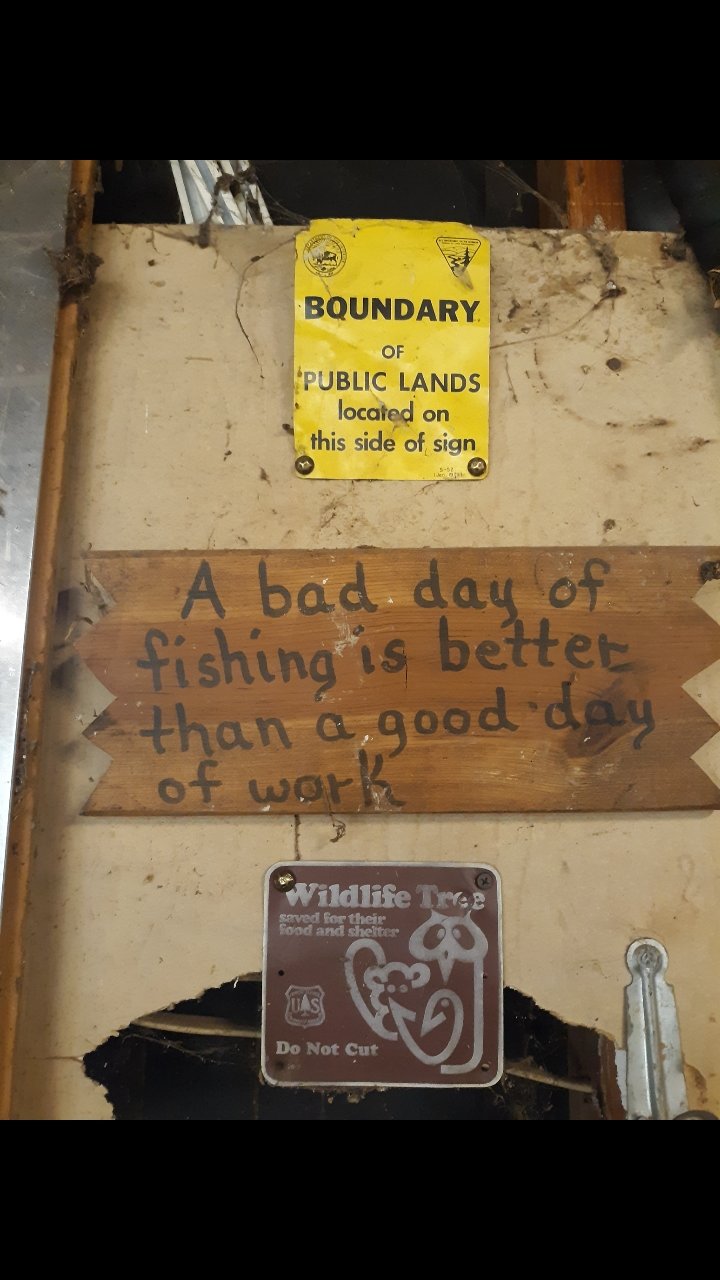 BOUNDARY
OF
PUBLIC LANDS
located on
this side of sign
A bad day of
fishing is better
than a good day
of work
Wildlife Tree
saved for their
food and shelter
UAS
Do Not Cut